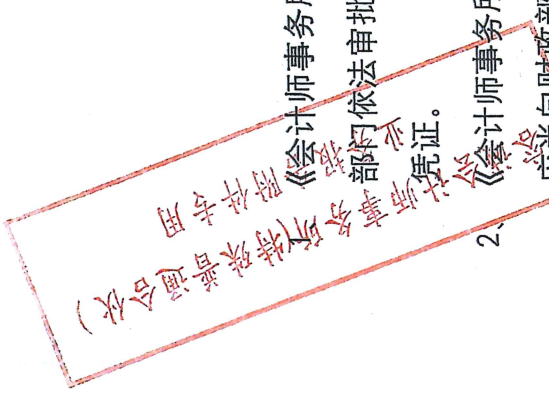 《会计师事务所
部门依法审批
凭证。
2、《会计师事务所
应当向财政部
师事务所(特殊普通合伙)
附件专用